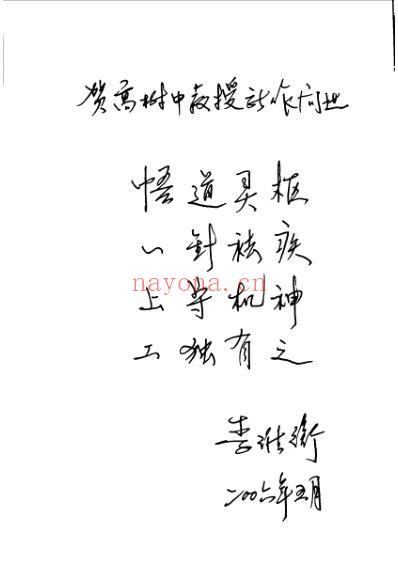 贺高树中教授新作问世
悟道灵枢
以針祛疾
nayona.cn
上守机神
工独有之
李维衡
二〇〇六年五月